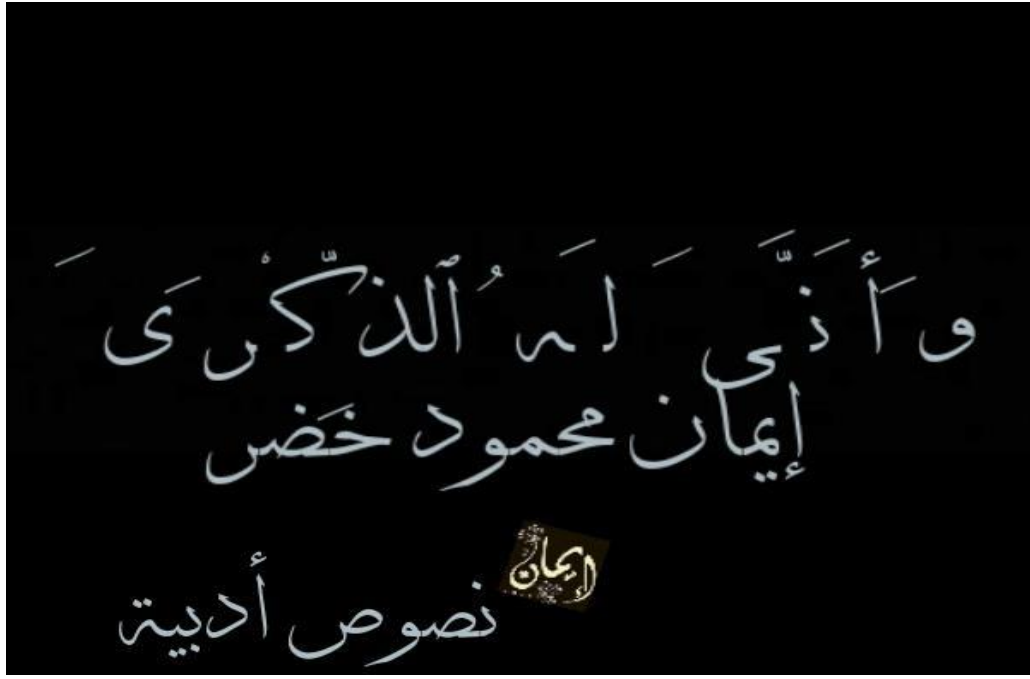 وَأَنَّى لَهُ ٱلذِّكْرَىَ
إيمان محمود خَضر
إيمان
نصوص أدبية